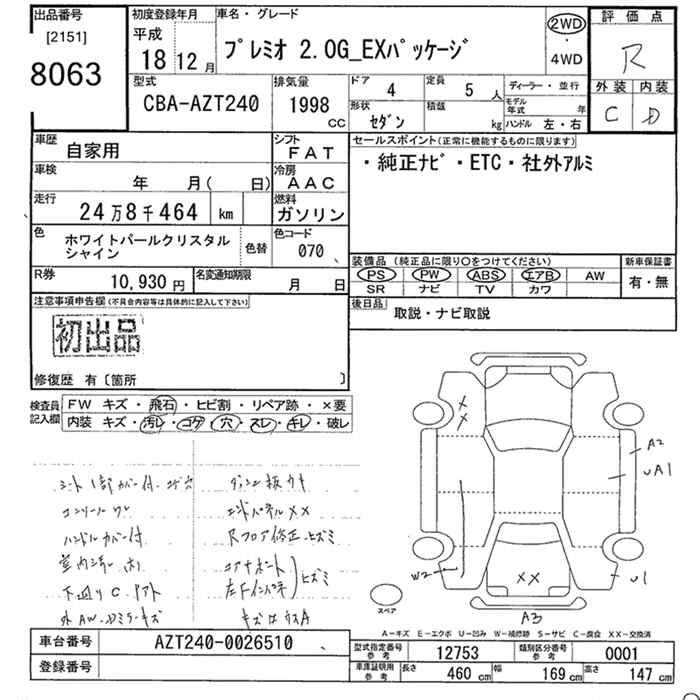 出品番号
[2151]
8063
初度登録年月
平成
18年12月
車名・グレード
プレミオ 2.0G_EXパッケージ
2WD
・
4WD
評価点
R
外装 内装
C D
型式
CBA-AZT240
排気量
1998
CC
ドア
4
定員
5人
形状
セダン
積載
kg
ディーラー・並行
モデル年式
年
ハンドル 左・右
車歴
自家用
シフト
FAT
車検
年 月( 日)
冷房
AAC
走行
24万8千464 km
燃料
ガソリン
色
ホワイトパールクリスタル
シャイン
色替
色コード
070
R券
10,930円
名変通知期限
月 日
セールスポイント(正常に機能するものに限ります)
・純正ナビ・ETC・社外アルミ
装備品 (純正品に限り○をつけてください)
PS PW ABS エアB AW
SR ナビ TV カワ
新車保証書
有・無
後日品
取説・ナビ取説
注意事項申告欄(不具合内容等は具体的に記入して下さい)
初出品
修復歴 有〔箇所 〕
検査員記入欄
FW キズ・飛石・ヒビ割・リペア跡・×要
内装 キズ・汚レ・コゲ・穴・スレ・キレ・破レ
シート1部カバー付.コゲ穴
コンソールワレ
ハンドルカバー付
下廻りC.
外AW.Dミラーキズ
エンドパネルXX
Rフロア修正.ヒズミ
ヒズミ
A2
uA1
W2
u1
XX
A3
スペア
A-キズ E-エクボ U-凹み W-補修跡 S-サビ C-腐食 XX-交換済
車台番号
AZT240-0026510
登録番号
型式指定番号
参考
12753
類別区分番号
参考
0001
車庫証明用
参考
長さ
460 cm
幅
169 cm
高さ
147 cm